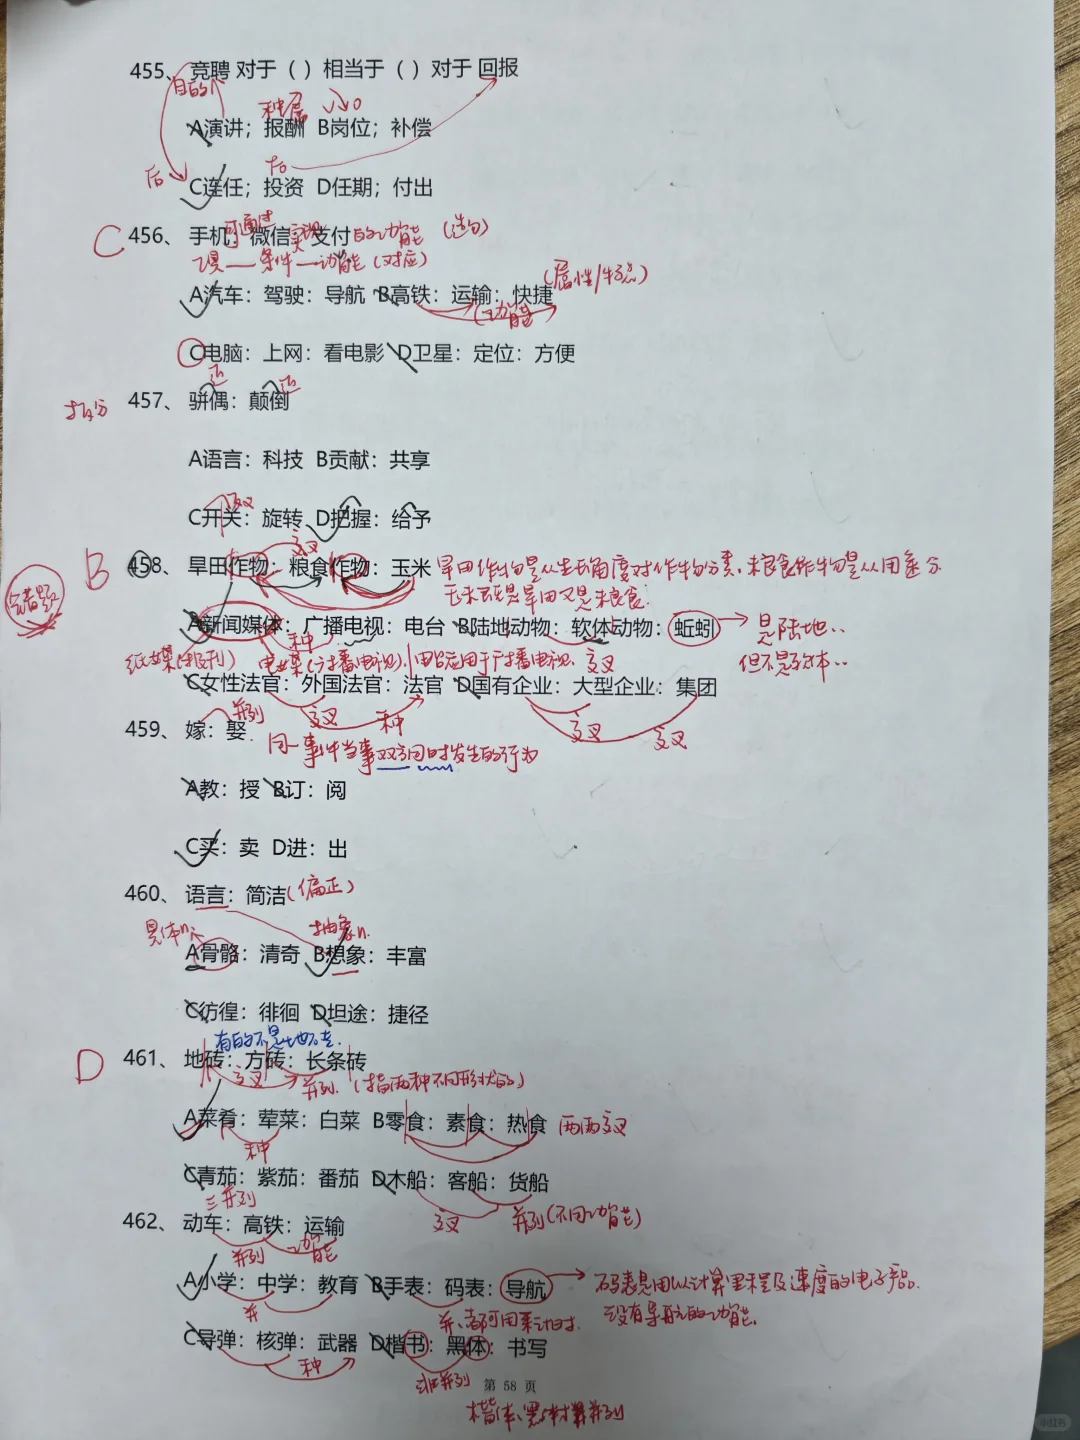 455、竞聘 对于（ ）相当于（ ）对于 回报
目的
种属
A演讲；报酬 B岗位；补偿
后
后
C连任；投资 D任期；付出
C
456、手机：微信：支付
可通过 实现 的功能（造句）
条件—功能（对应）
（属性/特点）
A汽车：驾驶：导航 B高铁：运输：快捷
（功能）
C电脑：上网：看电影 D卫星：定位：方便
近 近
拆分
457、骈偶：颠倒
A语言：科技 B贡献：共享
反义
C开关：旋转 D把握：给予
交叉
B
458、旱田作物：粮食作物：玉米
旱田作物是从生长角度对作物分类，粮食作物是从用途分
玉米既是旱田又是粮食.
错题
A新闻媒体：广播电视：电台 B陆地动物：软体动物：蚯蚓
是陆地..
但不是软体..
种
纸媒（报刊）
电媒（广播电视）
交叉
C女性法官：外国法官：法官 D国有企业：大型企业：集团
并列
交叉
种
交叉
交叉
459、嫁：娶
同一事件当事双方同时发生的行为
A教：授 B订：阅
C买：卖 D进：出
460、语言：简洁（偏正）
具体n.
抽象n.
A骨骼：清奇 B想象：丰富
C彷徨：徘徊 D坦途：捷径
有的不是地砖.
D
461、地砖：方砖：长条砖
交叉
并列.（指两种不同形状的）
A菜肴：荤菜：白菜 B零食：素食：热食 两两交叉
种
C青茄：紫茄：番茄 D木船：客船：货船
三并列
交叉
并列（不同功能）
462、动车：高铁：运输
并列 功能
A小学：中学：教育 B手表：码表：导航
码表是用以计算里程及速度的电子产品.
没有导航的功能.
并
并，都可用来计时.
C导弹：核弹：武器 D楷书：黑体：书写
种
非并列
第 58 页
楷体、黑体才算并列
小红书